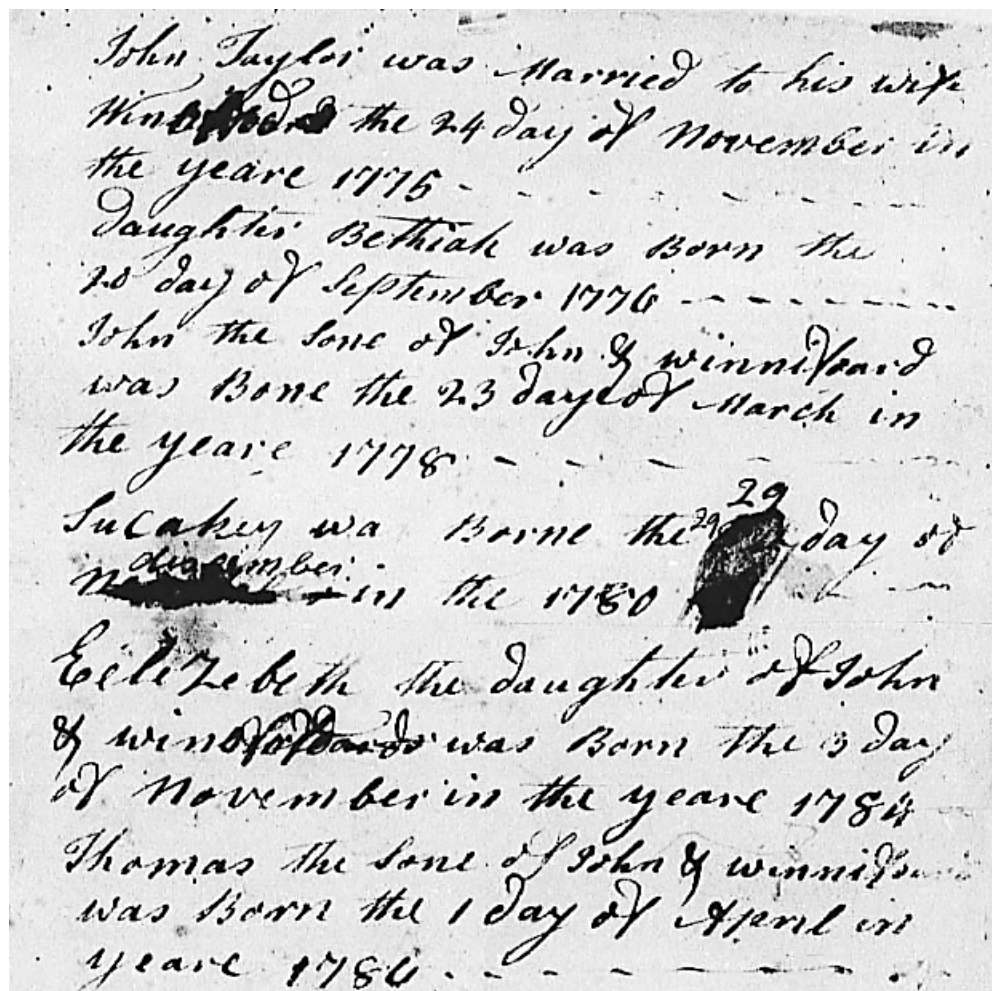 John Taylor was Married to his wife
the 24 day of November in
the yeare 1775 - - - - - - -
daughter Bethiah was Born the
20 day of September 1776 - - - - - - -
John the Sone of John & winnifeard
was Bone the 23 daye of March in
the yeare 1778 - - - - - -
29
Sucakey wa Borne the 29 day of
diecember
in the 1780
EeleZebeth the daughter of John
& was Born the 3 day
of November in the yeare 1784
Thomas the Sone of John &
was Born the 1 day of April in
yeare 1786 - - - - - -